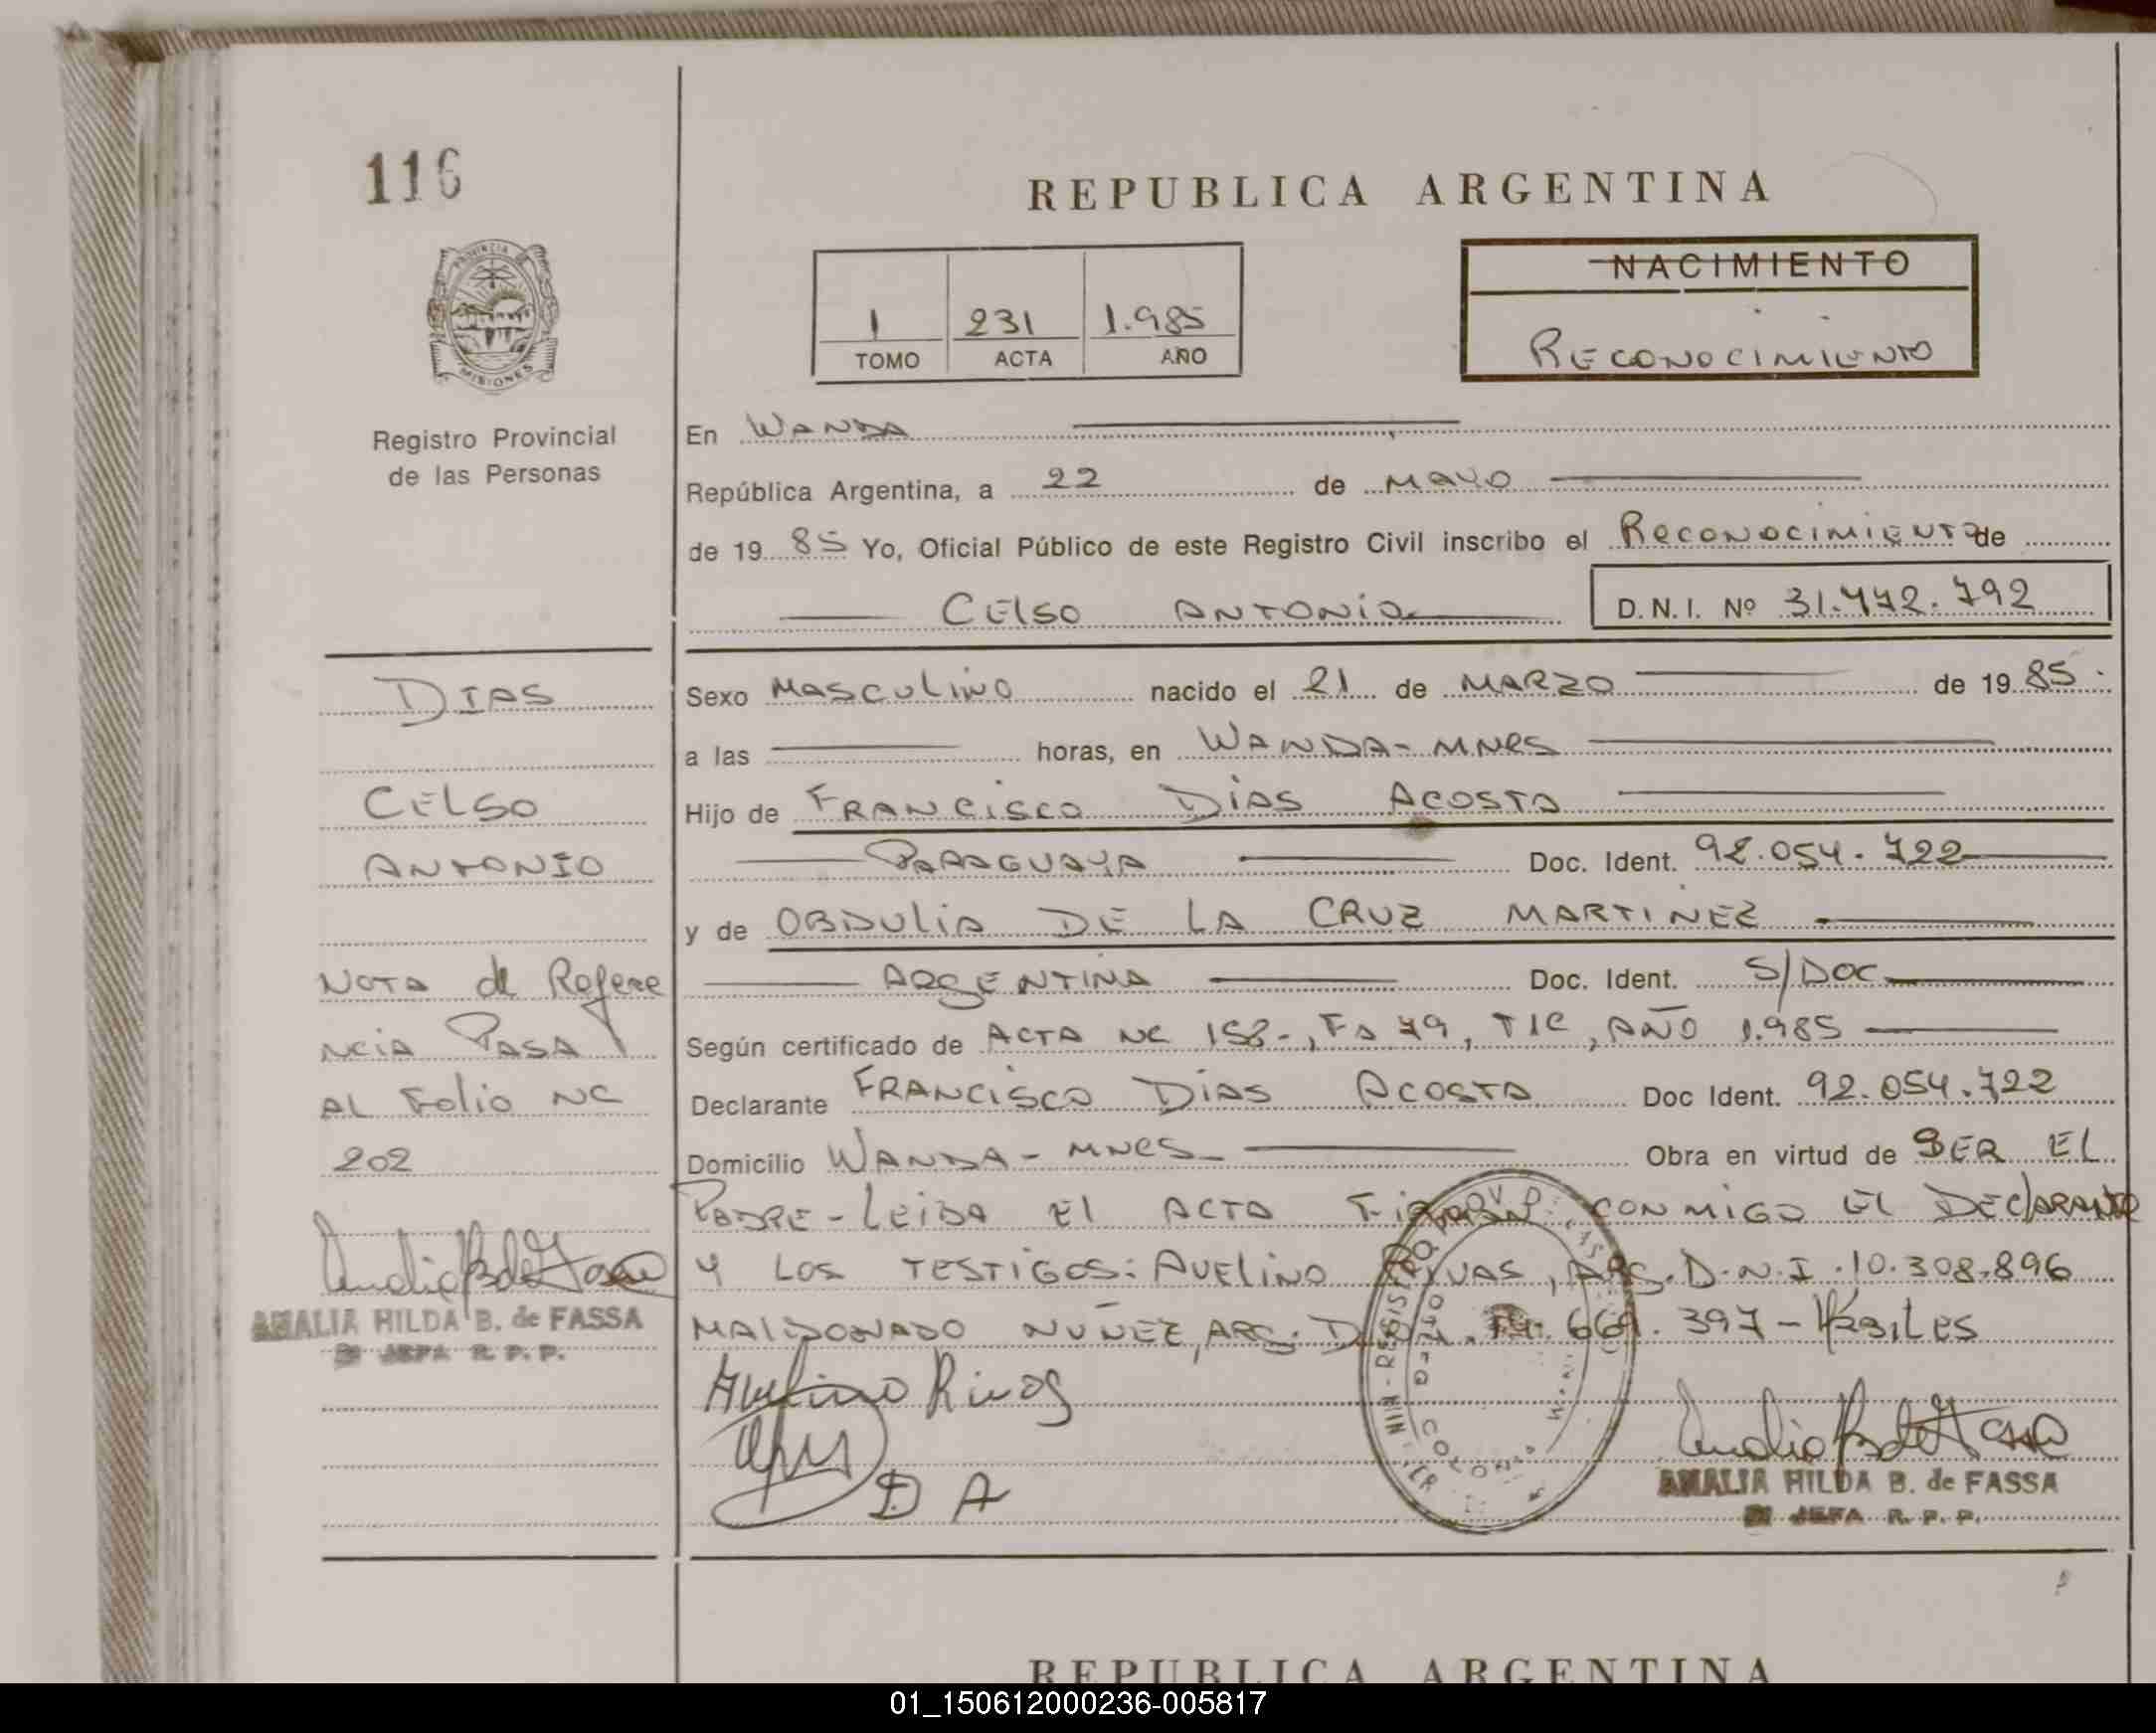 116
REPUBLICA ARGENTINA
PROVINCIA DE
MISIONES
Registro Provincial
de las Personas
1 231 1.985
TOMO ACTA AÑO
NACIMIENTO
RECONOCIMIENTO
En WANDA
República Argentina, a 22 de MAYO
de 19 85 Yo, Oficial Público de este Registro Civil inscribo el RECONOCIMIENTO de
CELSO ANTONIO D.N.I. Nº 31.472.792
DIAS
CELSO
ANTONIO
NOTA de Refere
NCIA PASA
AL Folio NC
202
AMALIA HILDA B. de FASSA
JEFA R. P. P.
Sexo MASCULINO nacido el 21 de MARZO de 19 85.
a las horas, en WANDA-MNES
Hijo de FRANCISCO DIAS ACOSTA
PARAGUAYA Doc. Ident. 92.054.722
y de OBDULIA DE LA CRUZ MARTINEZ
ARGENTINA Doc. Ident. S/DOC
Según certificado de ACTA NC 158-, Fo 79, TIC, AÑO 1.985
Declarante FRANCISCO DIAS ACOSTA Doc Ident. 92.054.722
Domicilio WANDA-MNES- Obra en virtud de SER EL
PADRE-LEIDA EL ACTA FIRMAN, CONMIGO EL DECLARANTE
Y LOS TESTIGOS: AVELINO RIVAS, ARG. D.N.I. 10.308.896
MALDONADO NUÑEZ, ARG. D.N.I. 669.397-
Avelino Rivas
D A
COLONIA WANDA
AMALIA HILDA B. de FASSA
JEFA R. P. P.
REPUBLICA ARGENTINA
01_150612000236-005817